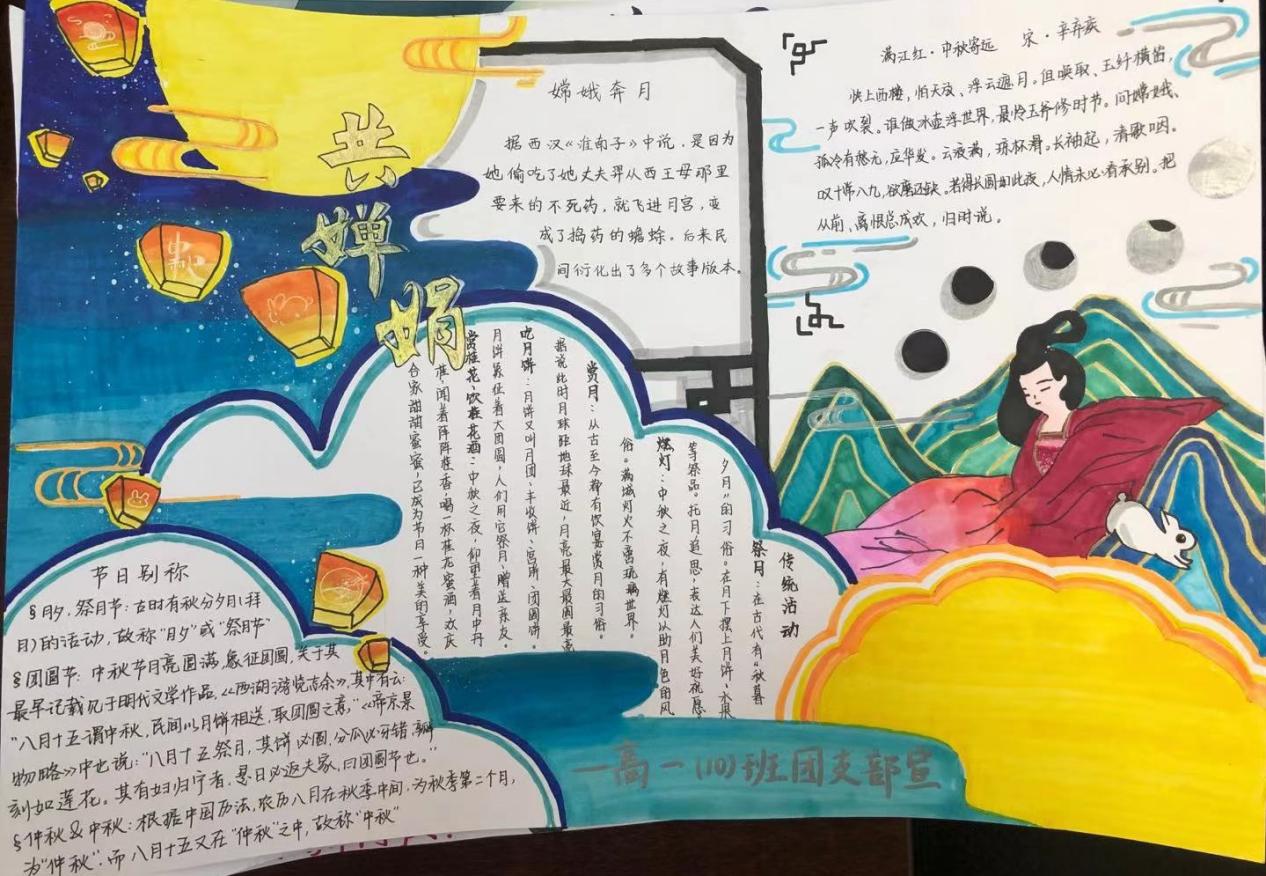 共婵娟
中秋
嫦娥奔月
据西汉《淮南子》中说，是因为
她偷吃了她丈夫羿从西王母那里
要来的不死药，就飞进月宫，变
成了捣药的蟾蜍。后来民
间衍化出了多个故事版本。
满江红·中秋寄远 宋·辛弃疾
快上西楼，怕天放、浮云遮月。但唤取、玉纤横笛，
一声吹裂。谁做冰壶浮世界，最怜玉斧修时节。问嫦娥、
孤冷有愁无，应华发。云液满，琼杯滑。长袖起，清歌咽。
叹十常八九，欲磨还缺。若得长圆如此夜，人情未必看承别。把
从前、离恨总成欢，归时说。
传统活动
祭月：在古代有“秋暮
夕月”的习俗。在月下摆上月饼、水果
等祭品。托月追思，表达人们美好祝愿。
燃灯：中秋之夜，有燃灯以助月色的风
俗。满城灯火不啻琉璃世界。
赏月：从古至今都有饮宴赏月的习俗。
据说此时月球距地球最近，月亮最大最圆最亮
吃月饼：月饼又叫月团、丰收饼、宫饼、团圆饼。
月饼象征着大团圆，人们用它祭月、赠送亲友。
赏桂花、饮桂花酒：中秋之夜，仰望着月中丹
桂，闻着阵阵桂香，喝一杯桂花蜜酒，欢庆
合家甜甜蜜蜜，已成为节日一种美的享受。
节日别称
§月夕、祭月节：古时有秋分夕月(拜
月)的活动，故称“月夕”或“祭月节”
§团圆节：中秋节月亮圆满，象征团圆，关于其
最早记载见于明代文学作品，《西湖游览志余》，其中有云：
“八月十五谓中秋，民间以月饼相送，取团圆之意，”《帝京景
物略》中也说：“八月十五祭月，其饼必圆，分瓜必牙错，瓣
刻如莲花。其有妇归宁者，是日必返夫家，曰团圆节也。”
§仲秋&中秋：根据中国历法，农历八月在秋季中间，为秋季第二个月，
为“仲秋”，而八月十五又在“仲秋”之中，故称“中秋”
一高一(10)班团支部宣